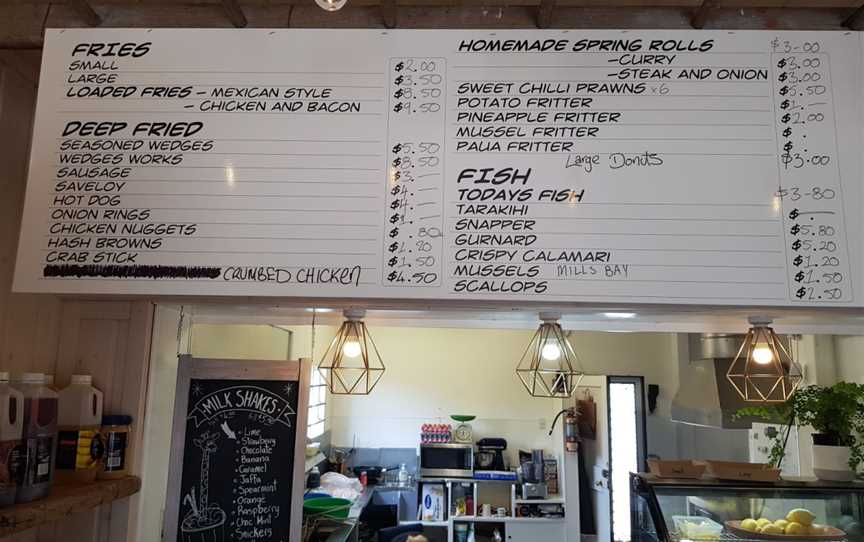 FRIES
SMALL $2.00
LARGE $3.50
LOADED FRIES - MEXICAN STYLE $8.50
- CHICKEN AND BACON $9.50
DEEP FRIED
SEASONED WEDGES $5.50
WEDGES WORKS $8.50
SAUSAGE $3.—
SAVELOY $4.—
HOT DOG $4.—
ONION RINGS $1.—
CHICKEN NUGGETS $.80
HASH BROWNS $1.20
CRAB STICK $1.50
CRUMBED CHICKEN $4.50
HOMEMADE SPRING ROLLS $3-00
-CURRY $3.00
-STEAK AND ONION $3.00
SWEET CHILLI PRAWNS x6
POTATO FRITTER $1.—
PINEAPPLE FRITTER $2.00
MUSSEL FRITTER $ .
PAUA FRITTER $ .
Large Donuts $3.00
FISH
TODAYS FISH $3-80
TARAKIHI $-.—
SNAPPER $5.80
GURNARD $5.20
CRISPY CALAMARI $1.20
MUSSELS MILLS BAY $1.50
SCALLOPS $2.50
MILK SHAKES
Lime
Strawberry
Chocolate
Banana
Caramel
Jaffa
Spearmint
Orange
Raspberry
Choc Mint
Snickers